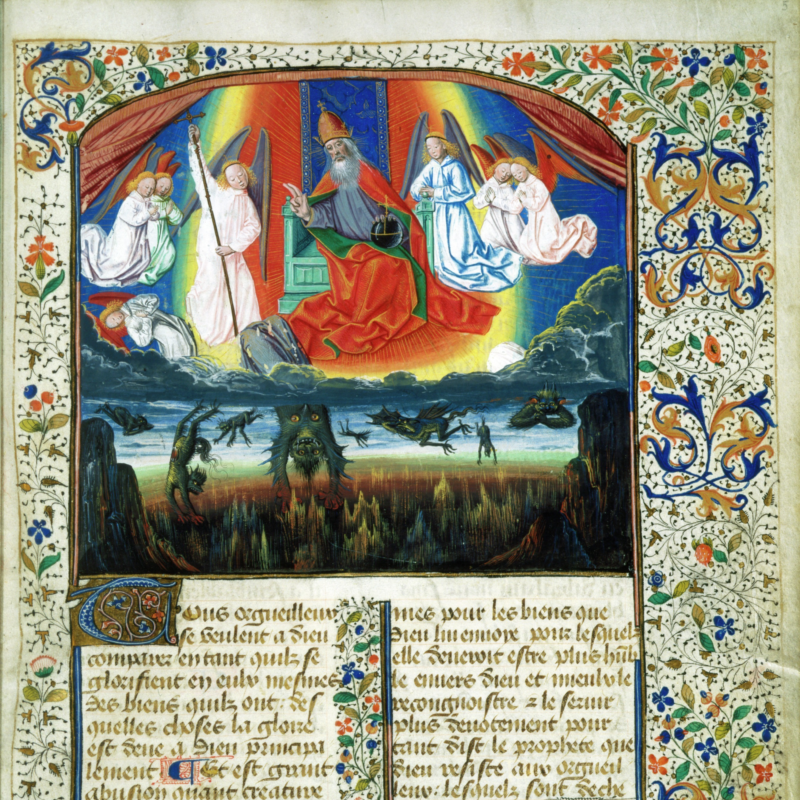 Tous orgueilleux
se veulent a dieu
comparer en tant quilz se
glorifient en eulx mesmes
des biens quilz ont. des
quelles choses la gloire
est deue a dieu principa
lement Et est grant
abusion quant creature
mes pour les biens que
dieu lui envoye pour lesquelz
elle devroit estre plus humb
le envers dieu et mieulx le
recongnoistre & le servir
plus devotement pour
tant dist le prophete que
dieu resiste aux orgueil
leux. lesquelz sont deche